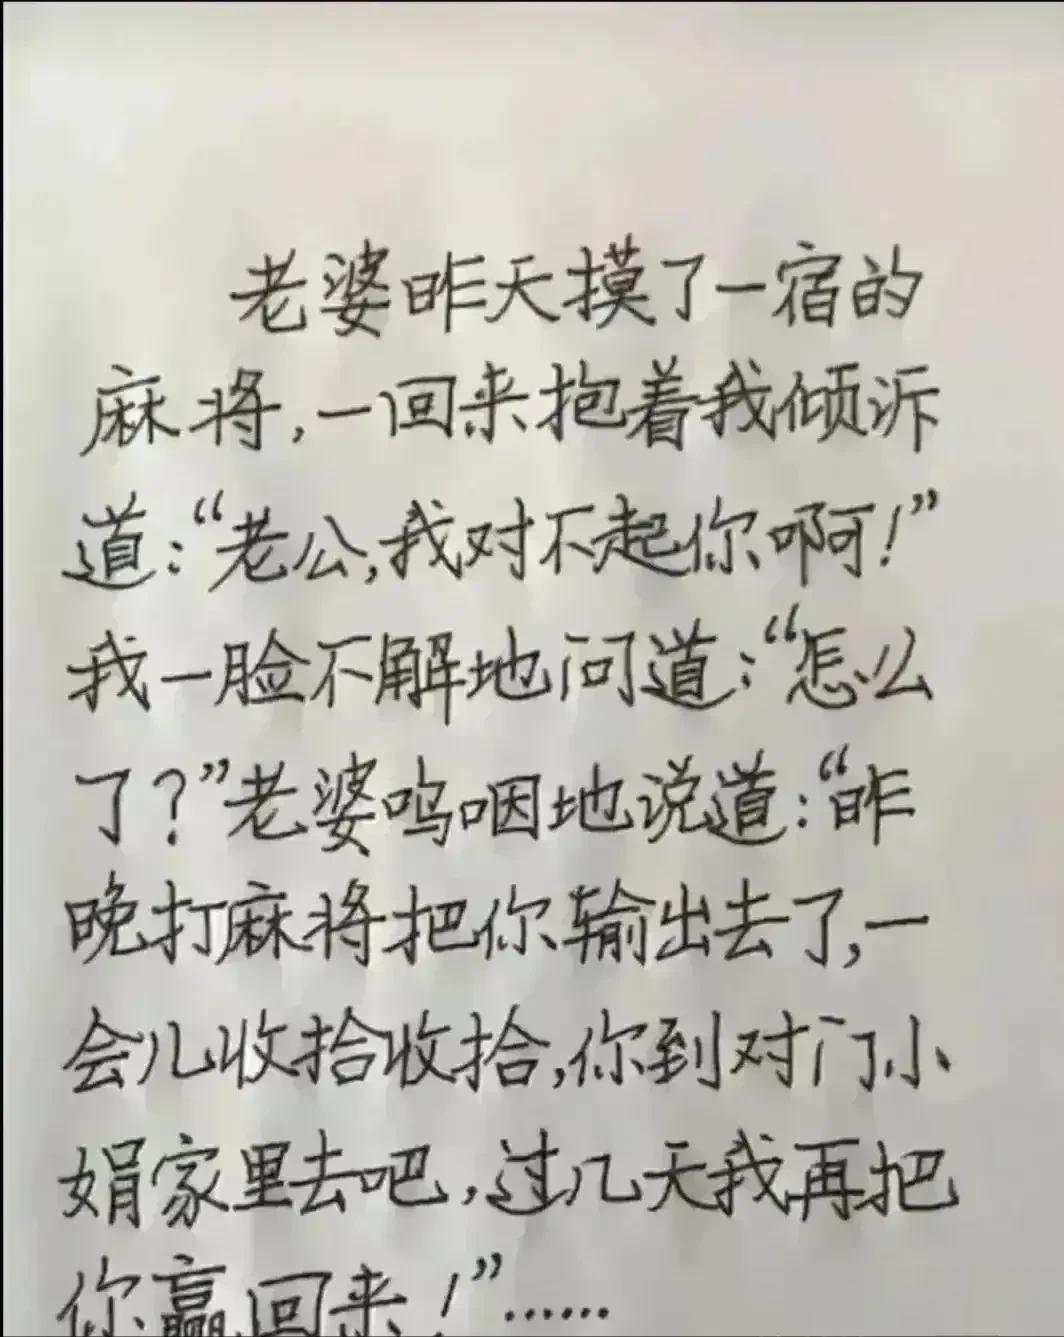 老婆昨天摸了一宿的
麻将,一回来抱着我倾诉
道:“老公,我对不起你啊!”
我一脸不解地问道:“怎么
了?”老婆呜咽地说道:“昨
晚打麻将把你输出去了,一
会儿收拾收拾,你到对门小
娟家里去吧,过几天我再把
你赢回来!”……